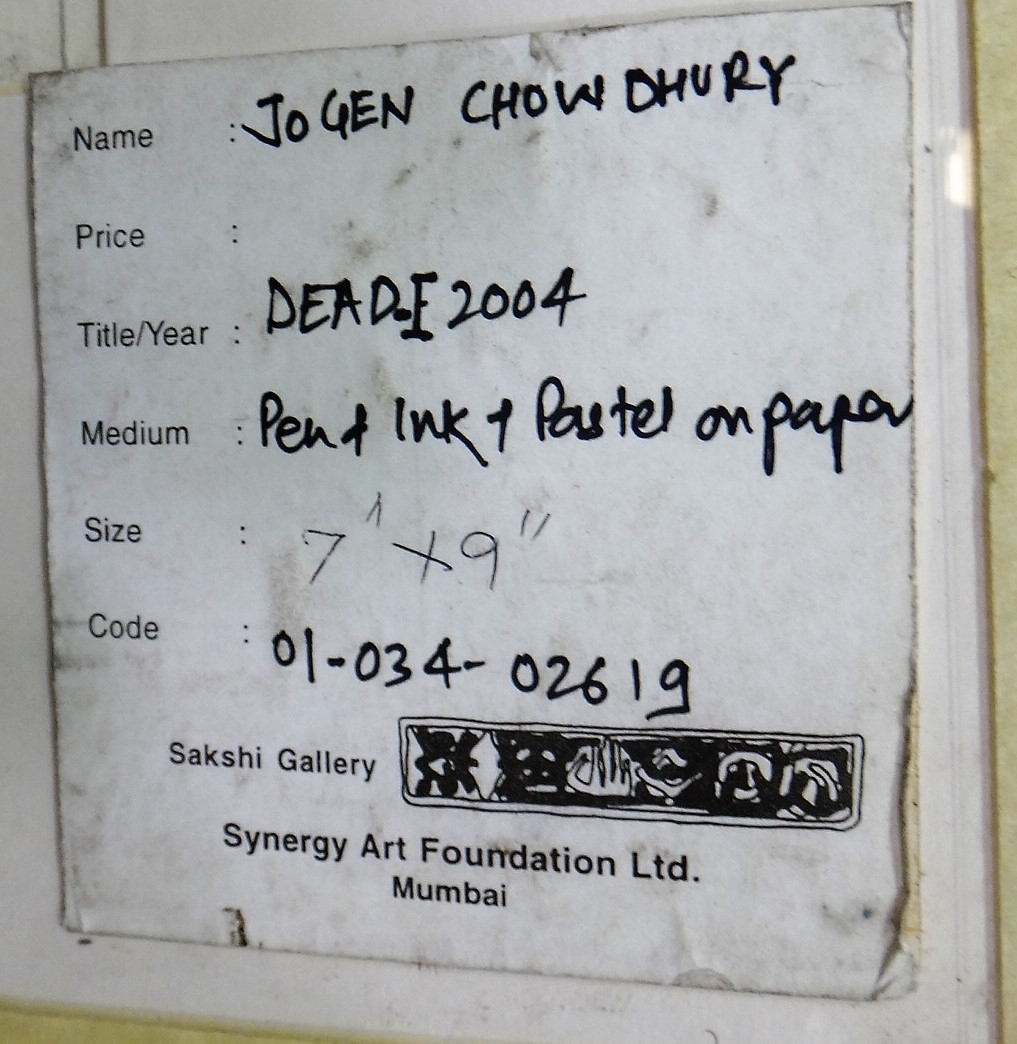 Name : JOGEN CHOWDHURY
Price :
Title/Year : DEAD-I 2004
Medium : Pen & Ink & Pastel on paper
Size : 7" x 9"
Code : 01-034-02619
Sakshi Gallery
Synergy Art Foundation Ltd.
Mumbai